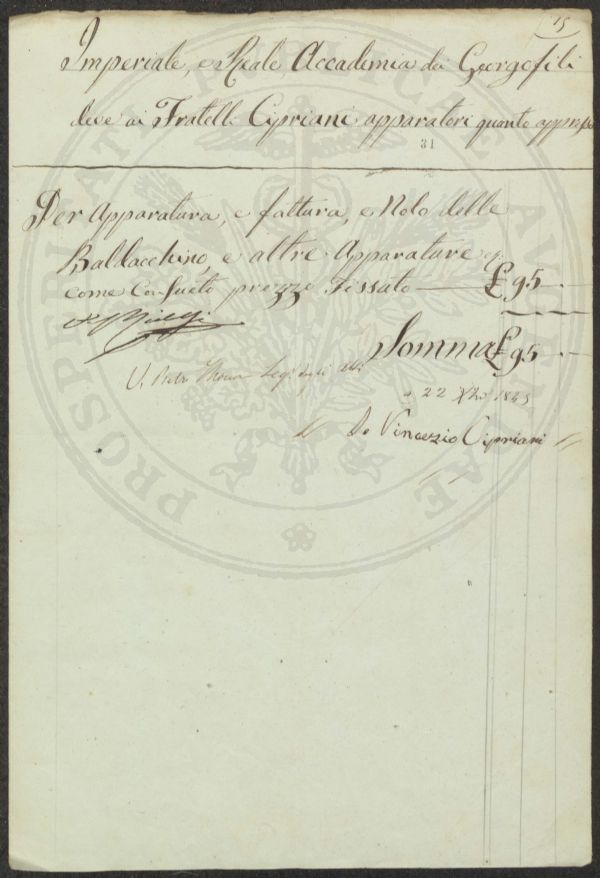 15
Imperiale, e Reale Accademia dei Georgofili
deve ai Fratelli Cipriani apparatori quanto appresso
31
Per Apparatura, e fattura, e Nolo delle
Baldacchino, e altre Apparature
come Consueto prezzo Fissato £ 95
Somma £ 95
22 Xbre 1845
Io Vincenzio Cipriani
PROSPERITATI PUBLICAE AUGENDAE